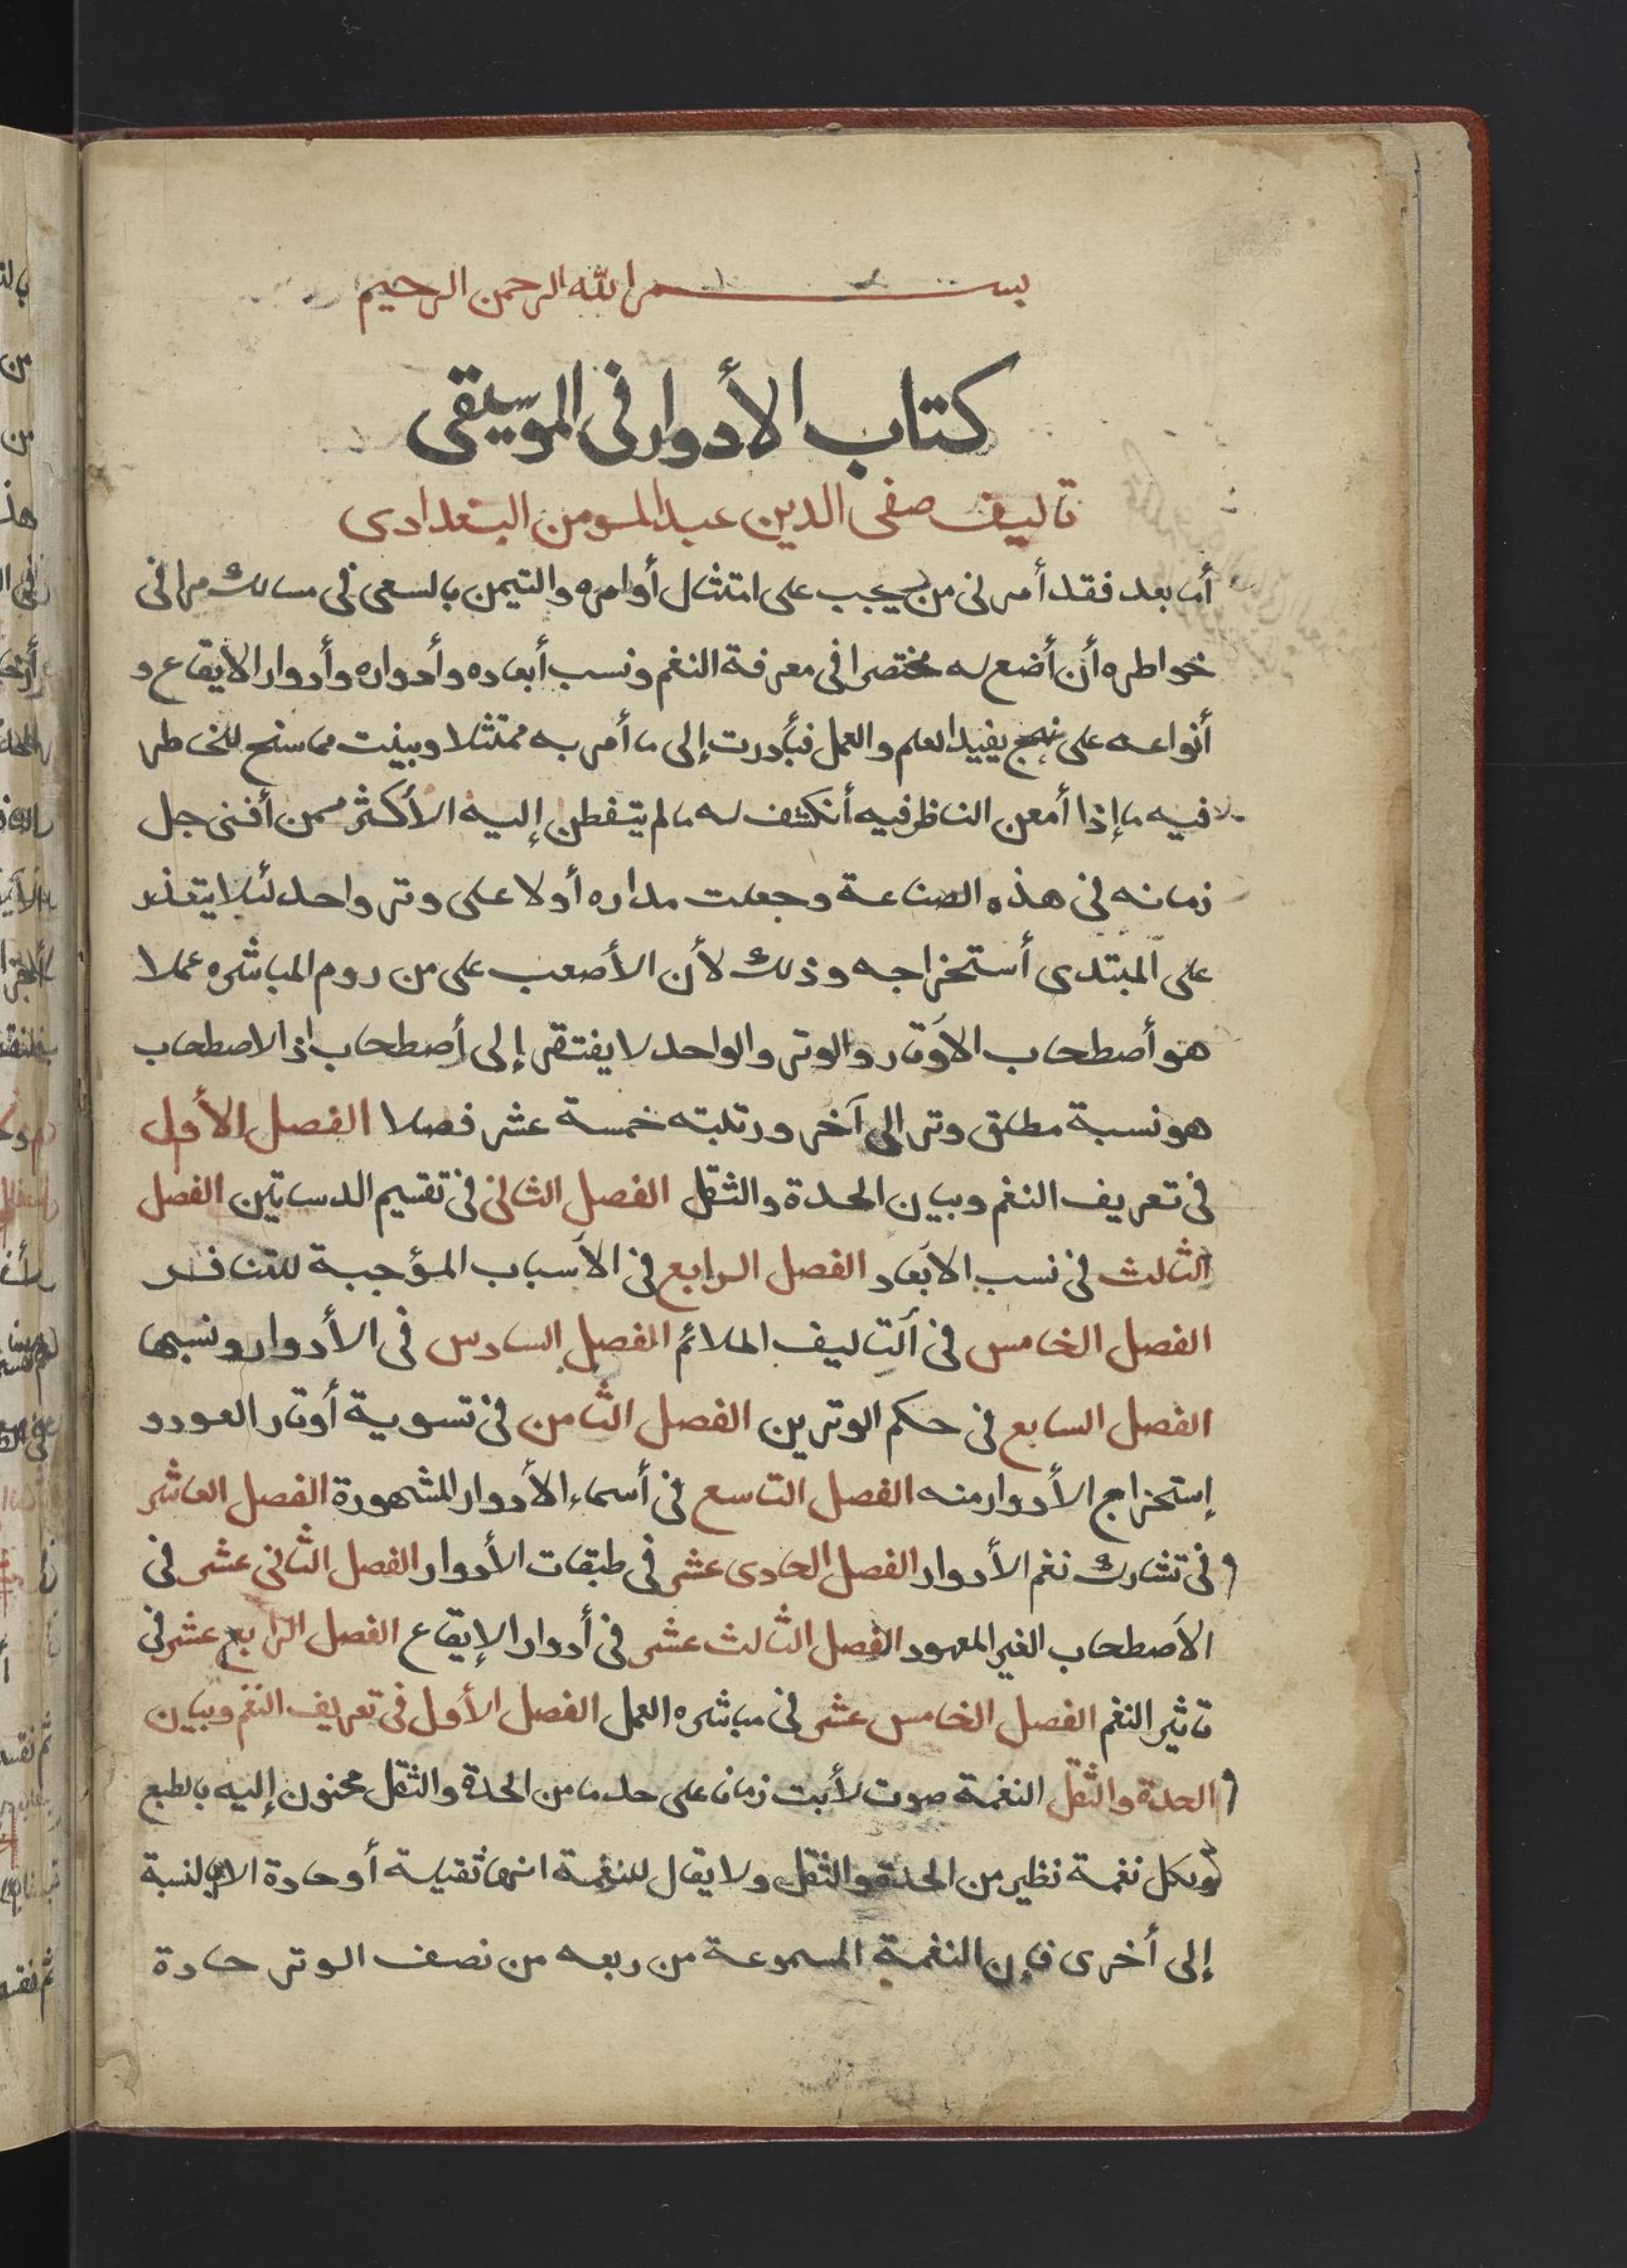 بسم الله الرحمن الرحيم
كتاب الأدوار فى الموسيقى
تاليف صفى الدين عبد المومن البغدادى
أما بعد فقد أمرنى من يجب على امتثال أوامره والتيمن بالسعى فى مسالك مرافى
خواطره أن أضع له مختصرا فى معرفة النغم ونسب أبعاده وأدواره وأدوار الأيقاع و
أنواعه على نهج يفيد العلم والعمل فبأدرت إلى ما أمر به ممتثلا وبينت مما سنح للخاطر
فيه ما إذا أمعن الناظر فيه أنكشف له ما لم يتفطن إليه الأكثر ممن أفنى جل
زمانه فى هذه الصناعة وجعلت مداره أولا على وتر واحد لئلا يتعذر
على المبتدى أستخراجه وذلك لأن الأصعب على من روم المباشره عملا
هو أصطحاب الأوتار والوتر والواحد لا يفتقر إلى أصطحاب اذ الاصطحاب
هو نسبة مطلق وتر الى آخر ورتلبته خمسة عشر فصلا الفصل الأول
فى تعريف النغم وبيان الحدة والثقل الفصل الثانى فى تقسيم الدساتين الفصل
الثالث فى نسب الأبعاد الفصل الرابع فى الأسباب المؤجبة للتنافر
الفصل الخامس فى ألتاليف الملائم الفصل السادس فى الأدوار ونسبها
الفصل السابع فى حكم الوترين الفصل الثامن فى تسوية أوتار العود و
إستخراج الأدوار منه الفصل التاسع فى أسماء الأدوار المشهورة الفصل العاشر
فى تشارك نغم الأدوار الفصل الحادى عشر فى طبقات الأدوار الفصل الثانى عشر فى
الأصطحاب الغير المعهود الفصل الثالث عشر فى أدوار الإيقاع الفصل الرابع عشر فى
تاثير النغم الفصل الخامس عشر فى مباشره العمل الفصل الأول فى تعريف النغم وبيان
الحدة والثقل النغمة صوت لأبت زمانا على حد ما من الحدة والثقل محنون إليه بالطبع
ولكل نغمة نظير من الحدة والثقل ولا يقال للنغمة انها ثقيلة أو حادة الا بالنسبة
إلى أخرى فإن النغمة المسموعة من ربعه من نصف الوتر حادة